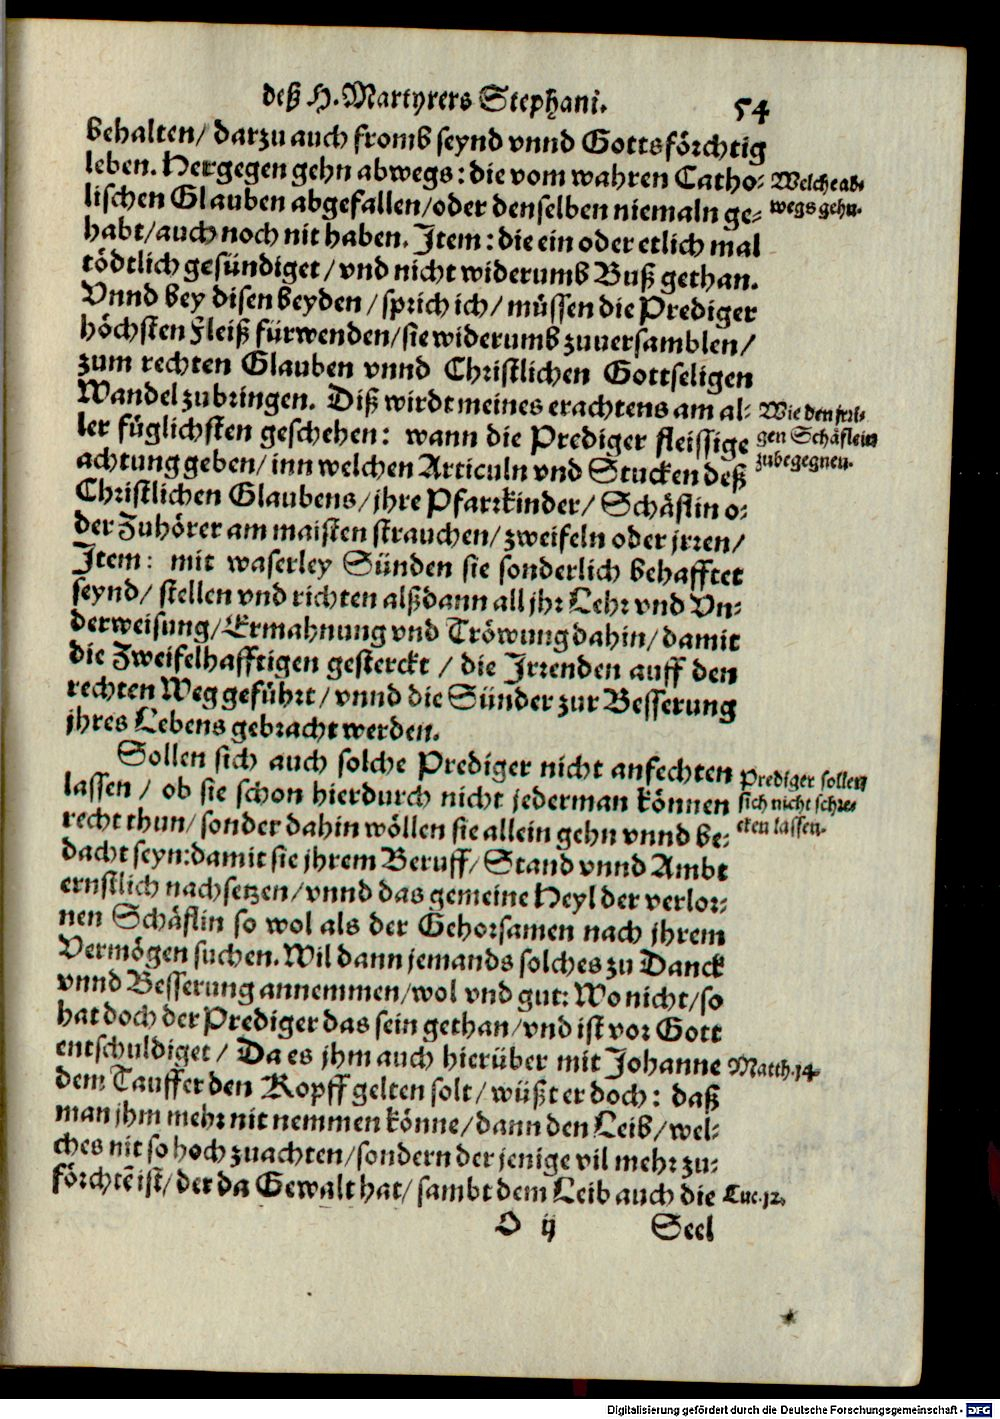 deß H. Martyrers Stephani. 54
behalten/ darzu auch fromb seynd vnnd Gottsförchtig
leben. Hergegen gehn abwegs: die vom wahren Catho-
Welche ab-
lischen Glauben abgefallen/ oder denselben niemaln ge-
wegs gehn.
habt/ auch noch nit haben. Item: die ein oder etlich mal
tödtlich gesündiget/ vnd nicht widerumb Buß gethan.
Vnnd bey disen beyden/ sprich ich/ müssen die Prediger
höchsten Fleiß fürwenden/ sie widerumb zuuersamblen/
zum rechten Glauben vnnd Christlichen Gottseligen
Wandel zubringen. Diß wirdt meines erachtens am al-
Wie den jrri-
ler füglichsten geschehen: wann die Prediger fleissige
gen Schäflein
achtung geben/ inn welchen Articuln vnd Stucken deß
zubegegnen.
Christlichen Glaubens/ jhre Pfarrkinder/ Schäflin o-
der Zuhörer am maisten strauchen/ zweifeln oder jrren/
Item: mit waserley Sünden sie sonderlich behafftet
seynd/ stellen vnd richten alßdann all jhr Lehr vnd Vn-
derweisung/ Ermahnung vnd Tröwung dahin/ damit
die Zweifelhafftigen gesterckt/ die Irrenden auff den
rechten Weg geführt/ vnnd die Sünder zur Besserung
jhres Lebens gebracht werden.
Sollen sich auch solche Prediger nicht anfechten
Prediger sollen
lassen/ ob sie schon hierdurch nicht jederman können
sich nicht schre-
recht thun/ sonder dahin wöllen sie allein gehn vnnd be-
cken lassen.
dacht seyn: damit sie jhrem Beruff/ Stand vnnd Ambt
ernstlich nachsetzen/ vnnd das gemeine Heyl der verlor-
nen Schäflin so wol als der Gehorsamen nach jhrem
Vermögen suchen. Wil dann jemands solches zu Danck
vnnd Besserung annemmen/ wol vnd gut: Wo nicht/ so
hat doch der Prediger das sein gethan/ vnd ist vor Gott
entschuldiget/ Da es jhm auch hierüber mit Johanne
Matth. 14.
dem Tauffer den Kopff gelten solt/ wüßt er doch: daß
man jhm mehr nit nemmen könne/ dann den Leib/ wel-
ches nit so hoch zuachten/ sondern der jenige vil mehr zu-
förchtē ist/ der da Gewalt hat/ sambt dem Leib auch die
Luc. 12.
O ij Seel
Digitalisierung gefördert durch die Deutsche Forschungsgemeinschaft - DFG